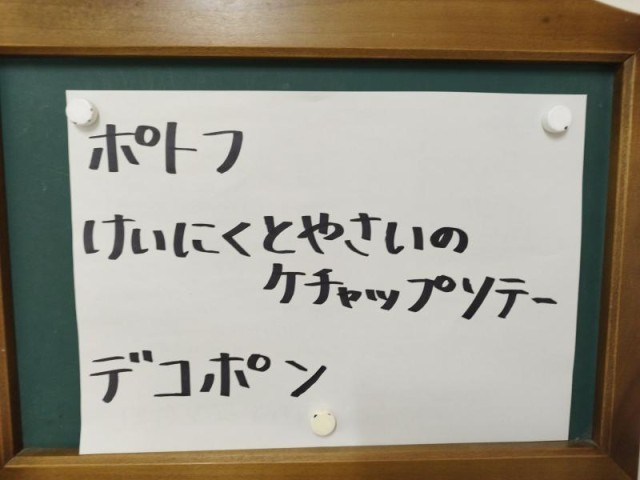 ポトフ
けいにくとやさいの
ケチャップソテー
デコポン